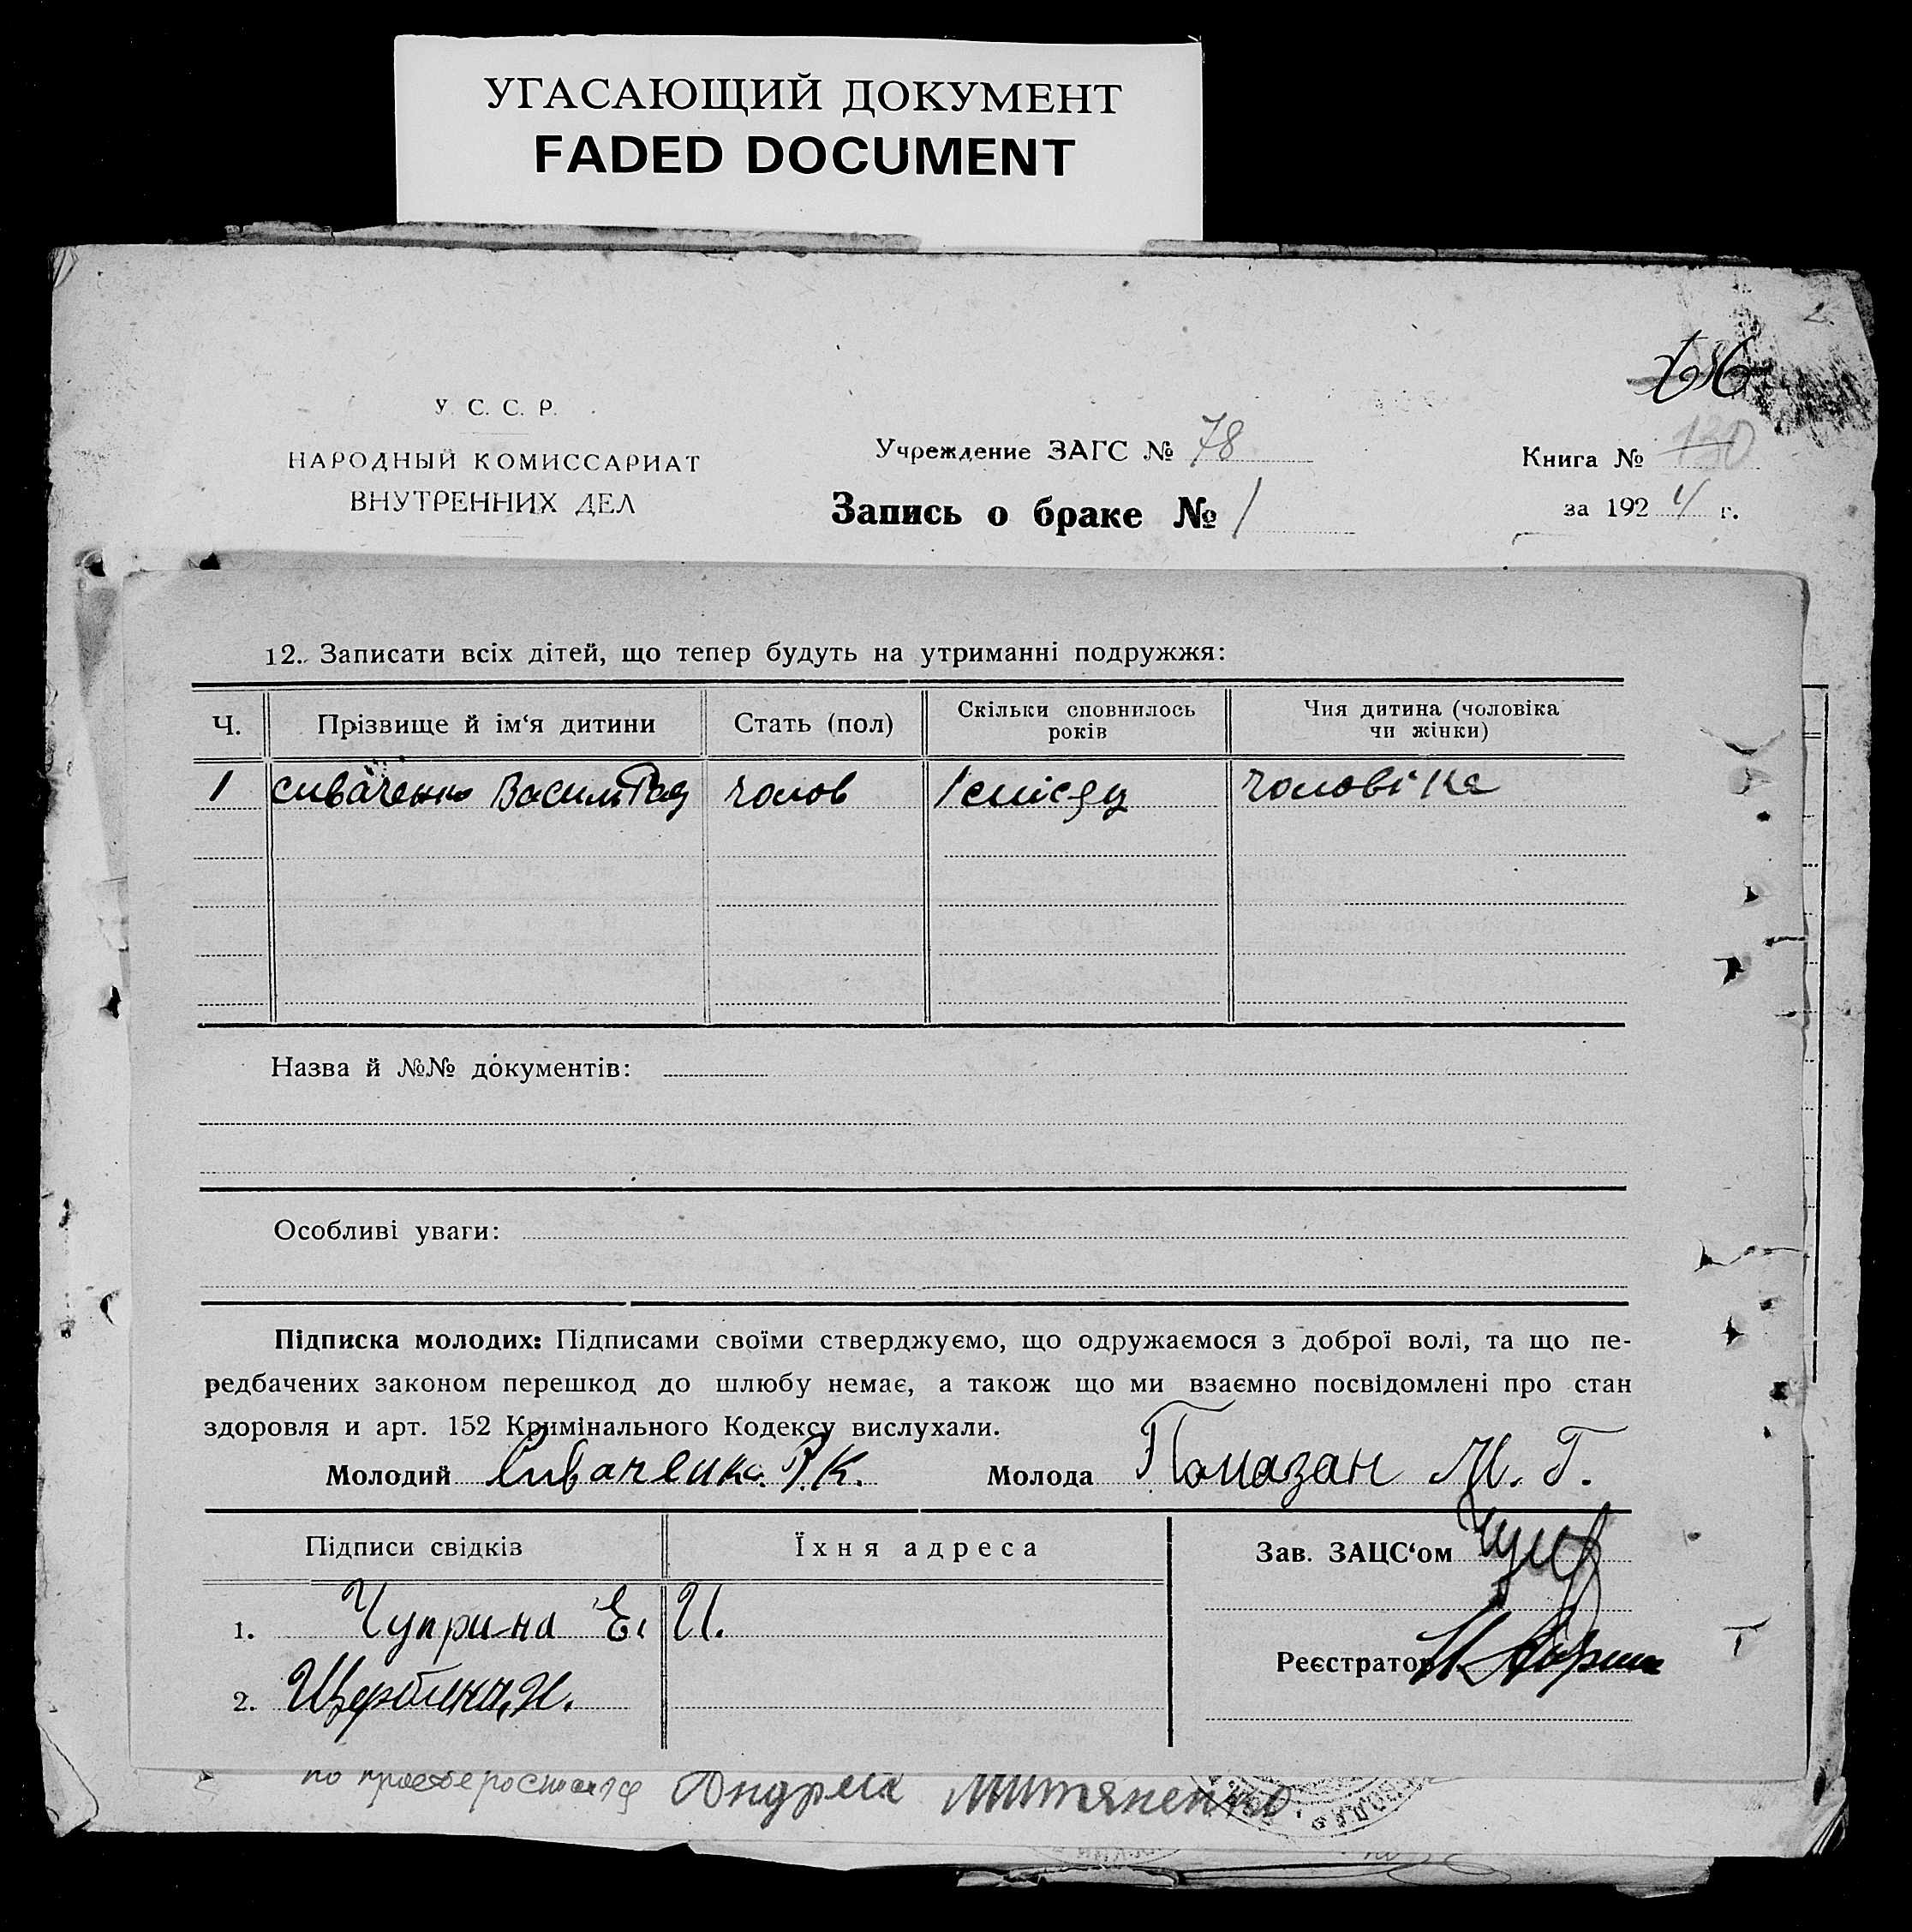 УГАСАЮЩИЙ ДОКУМЕНТ
FADED DOCUMENT
2.
У. С. С. Р.
НАРОДНЫЙ КОМИССАРИАТ
ВНУТРЕННИХ ДЕЛ
Учреждение ЗАГС № 78
Запись о браке № 1
Книга № 130
за 1924 г.
12. Записати всіх дітей, що тепер будуть на утриманні подружжя:
Ч. Прізвище й ім‘я дитини Стать (пол) Скільки сповнилось років Чия дитина (чоловіка чи жінки)
1 Сиваченко Василь чолов чоловіка
Назва й №№ документів:
Особливі уваги:
Підписка молодих: Підписами своїми стверджуємо, що одружаємося з доброї волі, та що пе-
редбачених законом перешкод до шлюбу немає, а також що ми взаємно посвідомлені про стан
здоровля и арт. 152 Кримінального Кодексу вислухали.
Молодий Сиваченко Р. К. Молода Помазан М. Г.
Підписи свідків Їхня адреса Зав. ЗАЦС‘ом
1. Чуприна Е. И.
Реєстратор
2. Щербина, И.
Андрей Митяненко